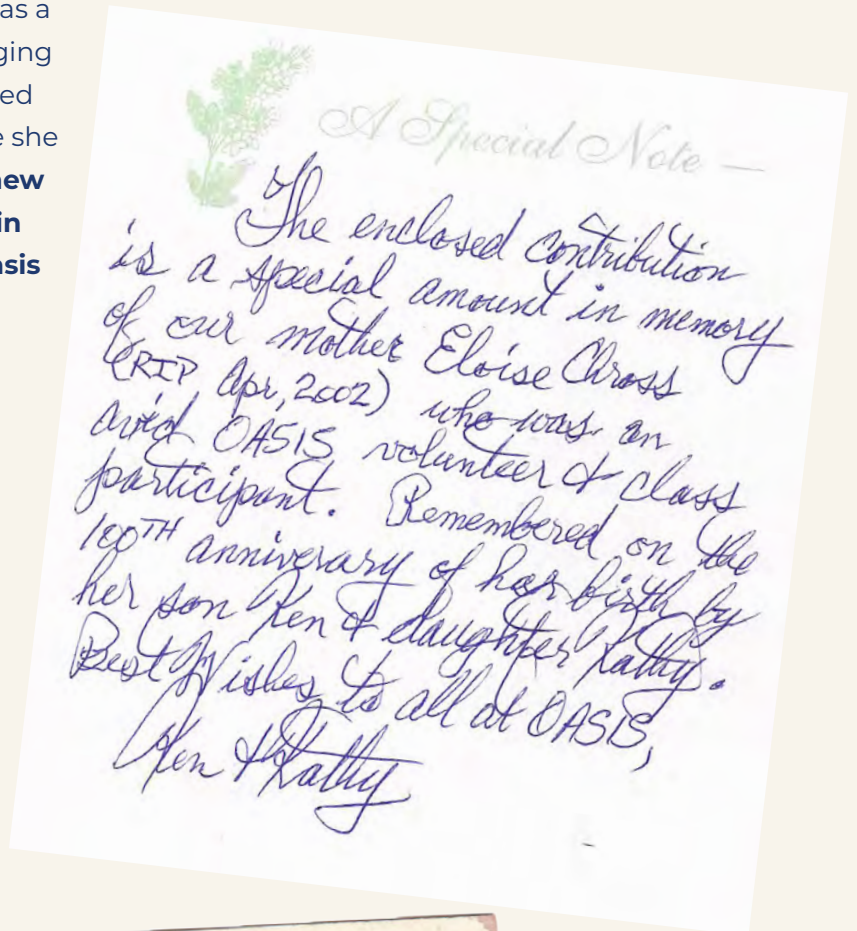 as a
ging
ed
e she
new
in
asis
A Special Note —
The enclosed contribution
is a special amount in memory
of our mother Eloise Chross
(RIP Apr, 2002) who was an
avid OASIS volunteer & class
participant. Remembered on the
100TH anniversary of her birth by
her son Ken & daughter Kathy.
Best Wishes to all at OASIS,
Ken & Kathy